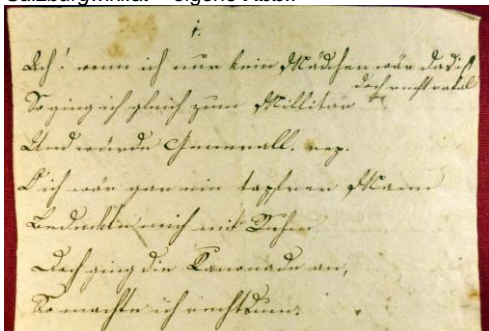 1.
Ach! wenn ich nur kein Mädchen wär das ist
doch recht fatal
So ging ich gleich zum Millitär
Und würde Generall. rep.
O ich wär gar ein tapfrer Mann
Bedeckte mich mit Ruhm
Doch ging die Kanonade an,
So machte ich rechtsum.